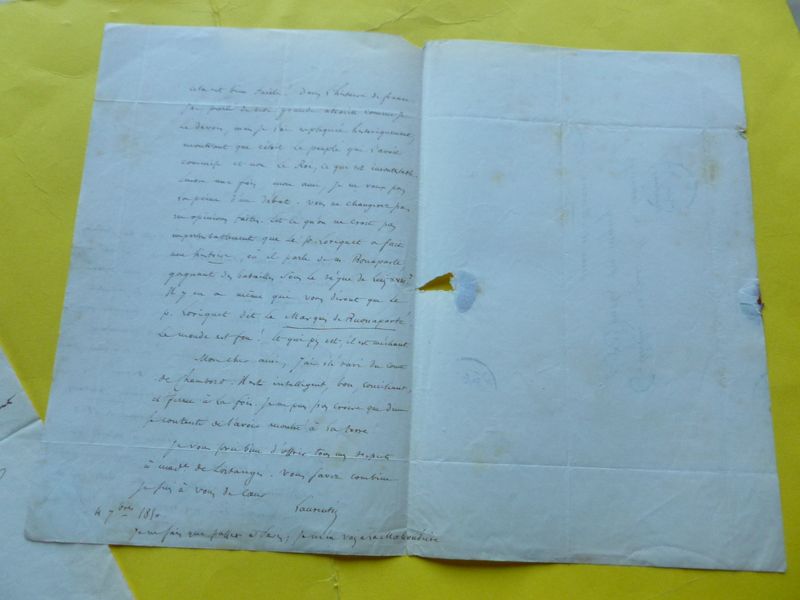 cela est bien traité. Dans l'histoire de france
j'ai parlé de cette grande atrocité comme je
le devois, mais je l'ai expliquée historiquement,
montrant que c'étoit le peuple qui l'avoit
commise et non le Roi, ce qui est incontestable.
encore une fois, mon ami, je ne veux pas
la peine d'un débat. vous ne changerez pas
les opinions faites. Est ce qu'on ne croit pas
imperturbablement que le p. loriquet a fait
une histoire, où il parle de m. Bonaparte
gagnant des batailles sous le règne de Louis XVIII?
Il y en a même qui vous diront que le
p. loriquet dit le Marquis de Buonaparté!
Le monde est fou! Ce qui pis est, il est méchant.
Mon cher ami, j'ai été ravi du comte
de Chambord. Il est intelligent, bon
et ferme à la fois. Je ne puis pas croire que Dieu
se contente de l'avoir montré à la terre
Je vous prie bien d'offrir tous mes respects
à made de Lostanges. vous savez combien
je suis à vous de cœur
Laurentie
4 7bre 1850
je ne fais que passer à Paris; je m'en vay à la